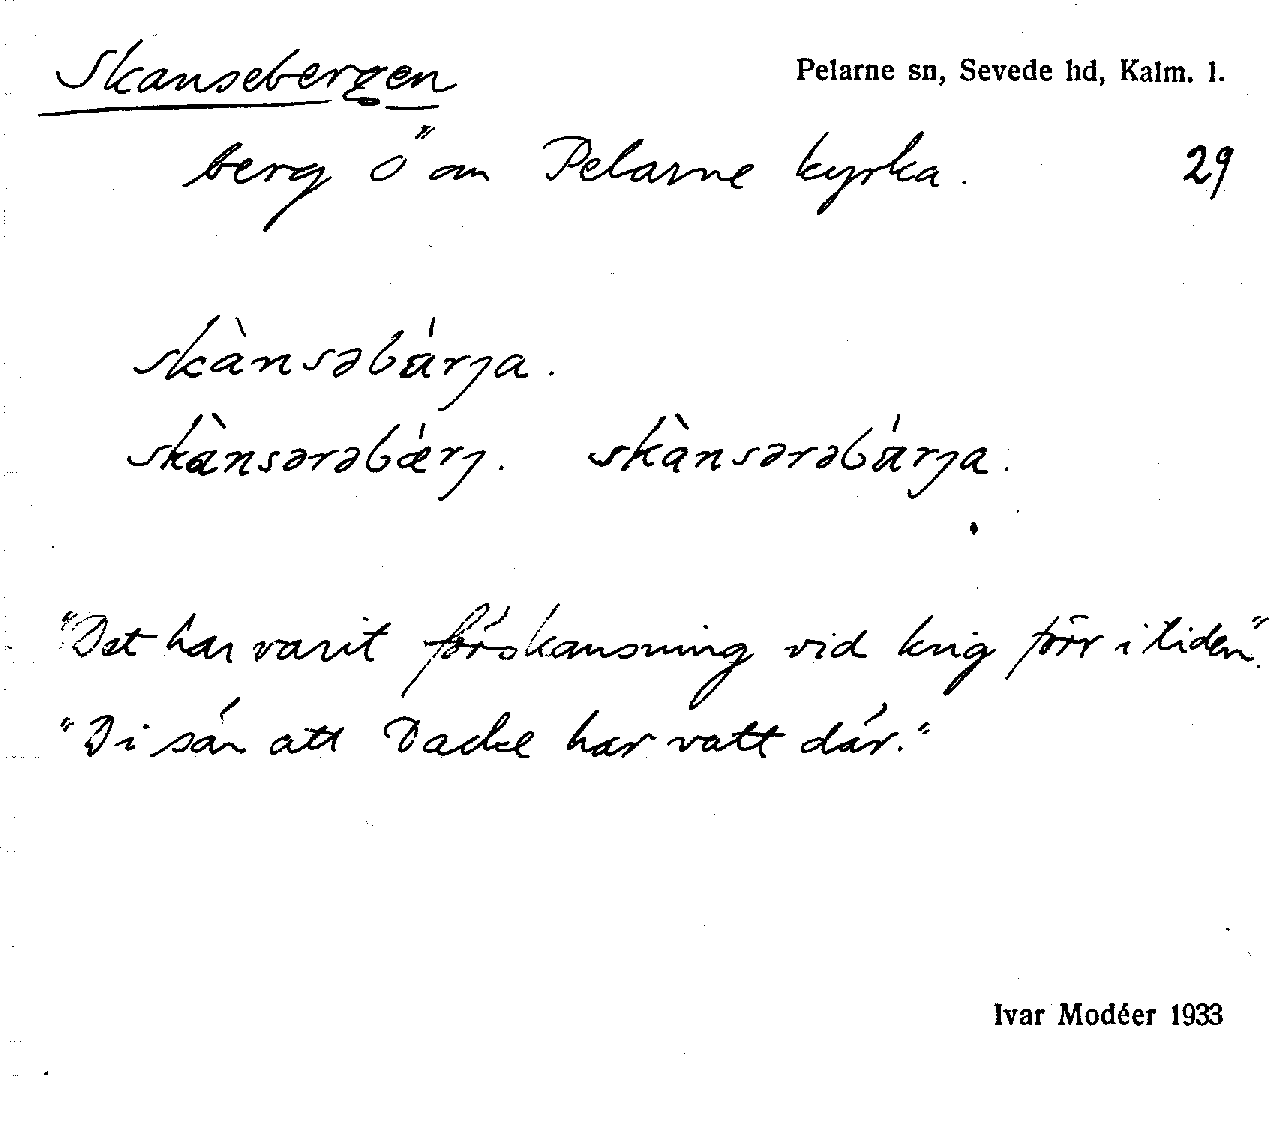 Skansebergen
Pelarne sn, Sevede hd, Kalm. l.
berg Ö om Pelarne kyrka.
29
skànsəbárja.
skànsərəbǽrj. skànsərəbárja.
"Det har varit förskansning vid krig förr i tiden".
"Di sár att Dacke har vatt dár."
Ivar Modéer 1933